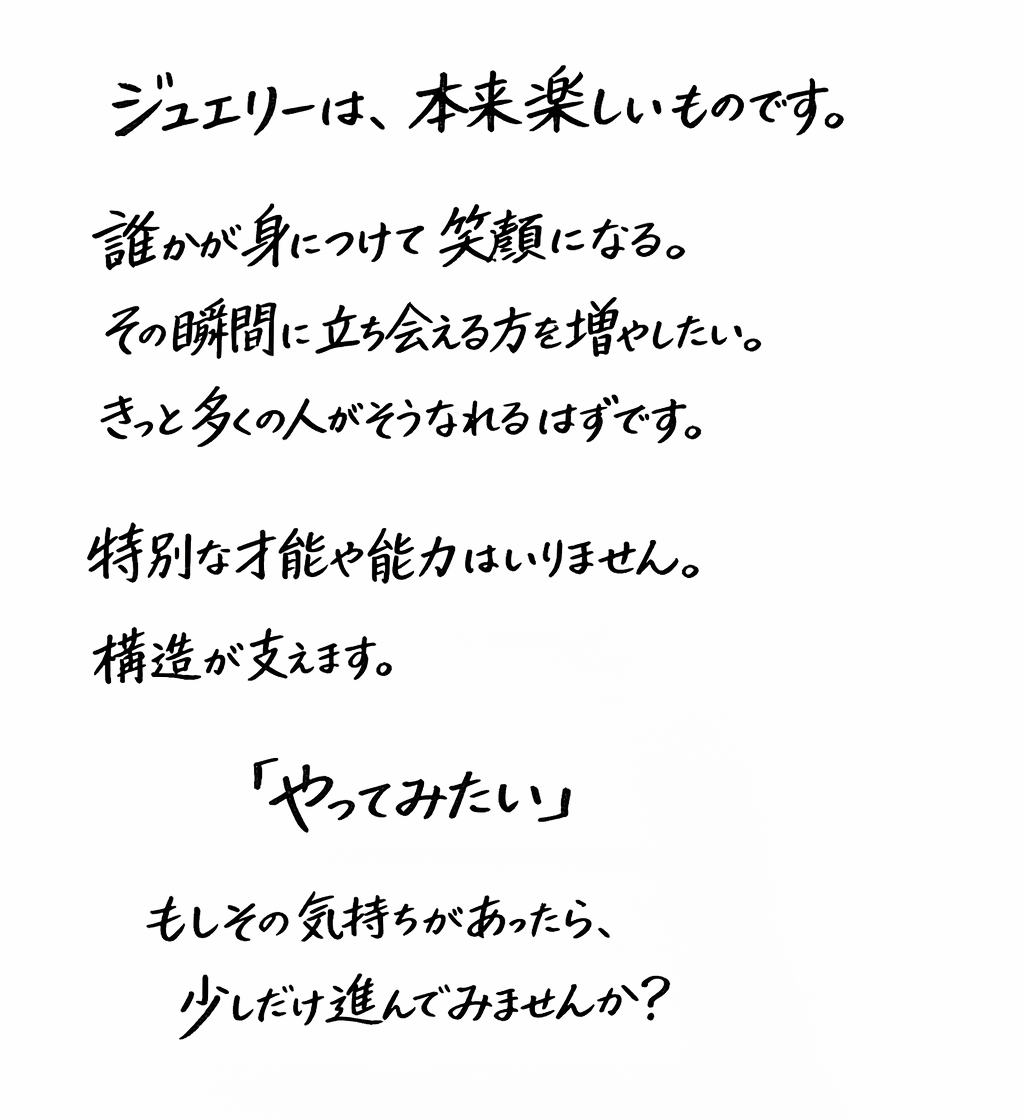 ジュエリーは、本来楽しいものです。
誰かが身につけて笑顔になる。
その瞬間に立ち会える方を増やしたい。
きっと多くの人がそうなれるはずです。
特別な才能や能力はいりません。
構造が支えます。
「やってみたい」
もしその気持ちがあったら、
少しだけ進んでみませんか?